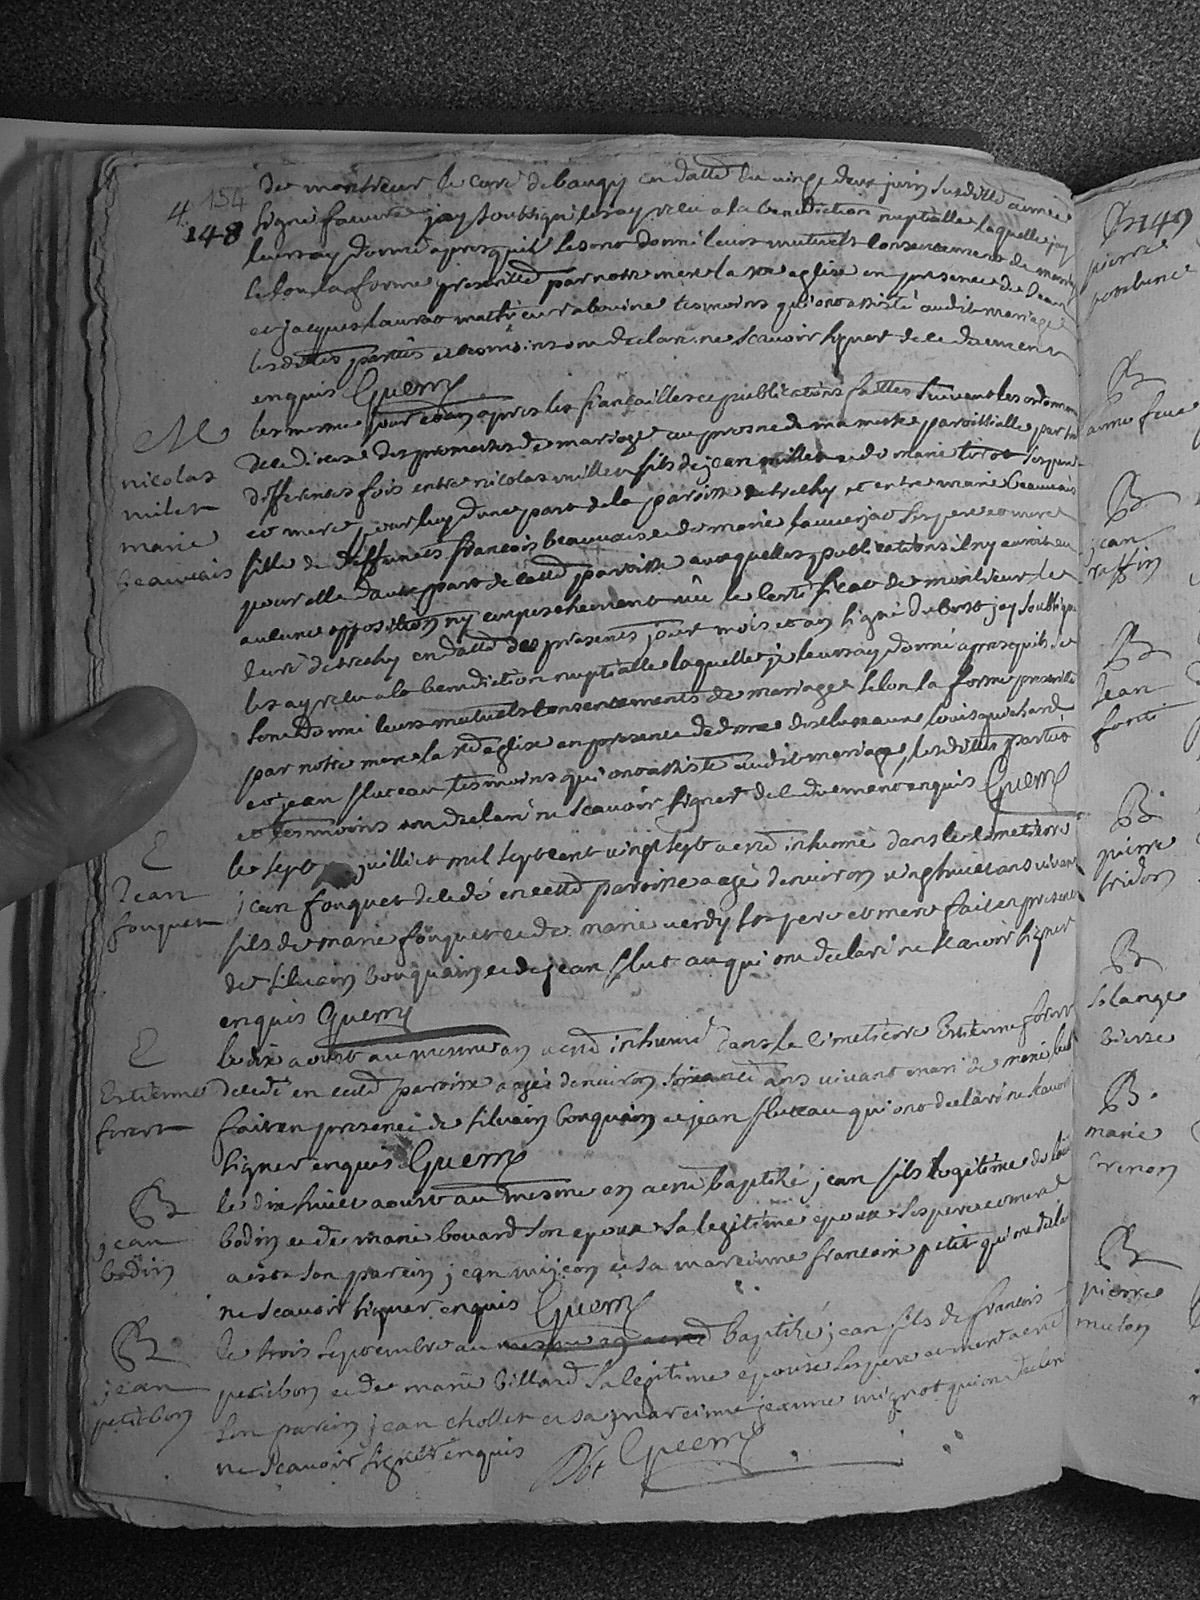 4 154
148
de monsieur le curé de baugy en datte du vingt deux juin susditte année
signé faeuvre jay soubsigné les ay receu a la benediction nuptialle laquelle jay
leur ay donné apres quils se sont donné leurs mutuels consentements de mariage
selon la forme prescritte par notre mere la ste eglise en presence de Jean
et jacques laurat mathieu rabouine tesmoins qui ont assisté audit mariage
lesdittes parties et tesmoins ont declaré ne scavoir signer de ce duement
enquis Guerry
M
nicolas
milet
marie
beauvais
les mesme jour et an apres les fiançailles et publications faittes suivant les ordonnan
de ce diocese des promesses de mariage au prosne de ma messe paroissialle par trois
differentes fois entre nicolas millet fils de jean millet et de marie tirot ses pere
et mere pour luy d'une part de la paroisse de et entre marie beauvais
fille de deffuncts francois beauvais et de marie lauverjat ses pere et mere
pour elle d'autre part de cette paroisse auxquelles publications il ny auroit eu
aucune opposition ny empeschement vû le certificat de monsieur le
curé de en datte des presents jour mois et an signé dubost jay soubsigné
les ay receu a la benediction nuptialle laquelle je leur ay donné apres quils se
sont donné leurs mutuels consentements de mariage selon la forme prescritte
par notre mere la ste eglise en presence de louis quichard
et jean fluteau tesmoins qui ont assisté audit mariage lesdittes parties
et tesmoins ont declaré ne scavoir signer de ce duement enquis Guerry
Jean
fouquet
le sept juillet mil sept cent vingt sept a eté inhumé dans le cimetiere
jean fouquet decedé en cette paroisse aagé denviron vingt huict ans vivant
fils de marie fouquet et de marie verdy ses pere et mere fait en presence
de silvain bouquain et de jean flut au qui ont declaré ne scavoir signer
enquis Guerry
Estienne
foret
le dix aoust au mesme an a eté inhumé dans le cimetiere Estienne foret
decedé en cette paroisse aagé denviron soixante ans vivant mari de marie
fait en presence de silvain bouquain et jean fluteau qui ont declaré ne scavoir
signer enquis Guerry
B
jean
bodin
le dix huict aoust au mesme an a eté baptisé jean fils legitime de
bodin et de marie bouard son epoux sa legitime epouse ses pere et mere
a esté son parein jean mijeon et sa mareinne francoise petit qui ont declaré
ne scavoir signer enquis Guerry
B
jean
petitbon
le trois septembre au mesme an a eté baptisé jean fils de francois
petitbon et de marie billard sa legitime epouse ses pere et mere a eté
son parein jean chollet et sa mareinne jeanne mignot qui ont declaré
ne scavoir signer enquis Guerry
149
pierre
B
anne
B
jean
raffin
B
Jean
B
pierre
tridon
B
solange
B
marie
crenon
B
pierre
milon